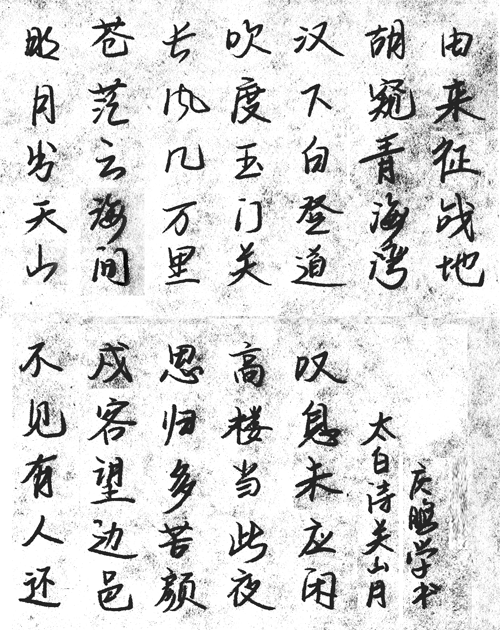 明月出天山
苍茫云海间
长风几万里
吹度玉门关
汉下白登道
胡窥青海湾
由来征战地
不见有人还
戍客望边邑
思归多苦颜
高楼当此夜
叹息未应闲
太白诗关山月
学书